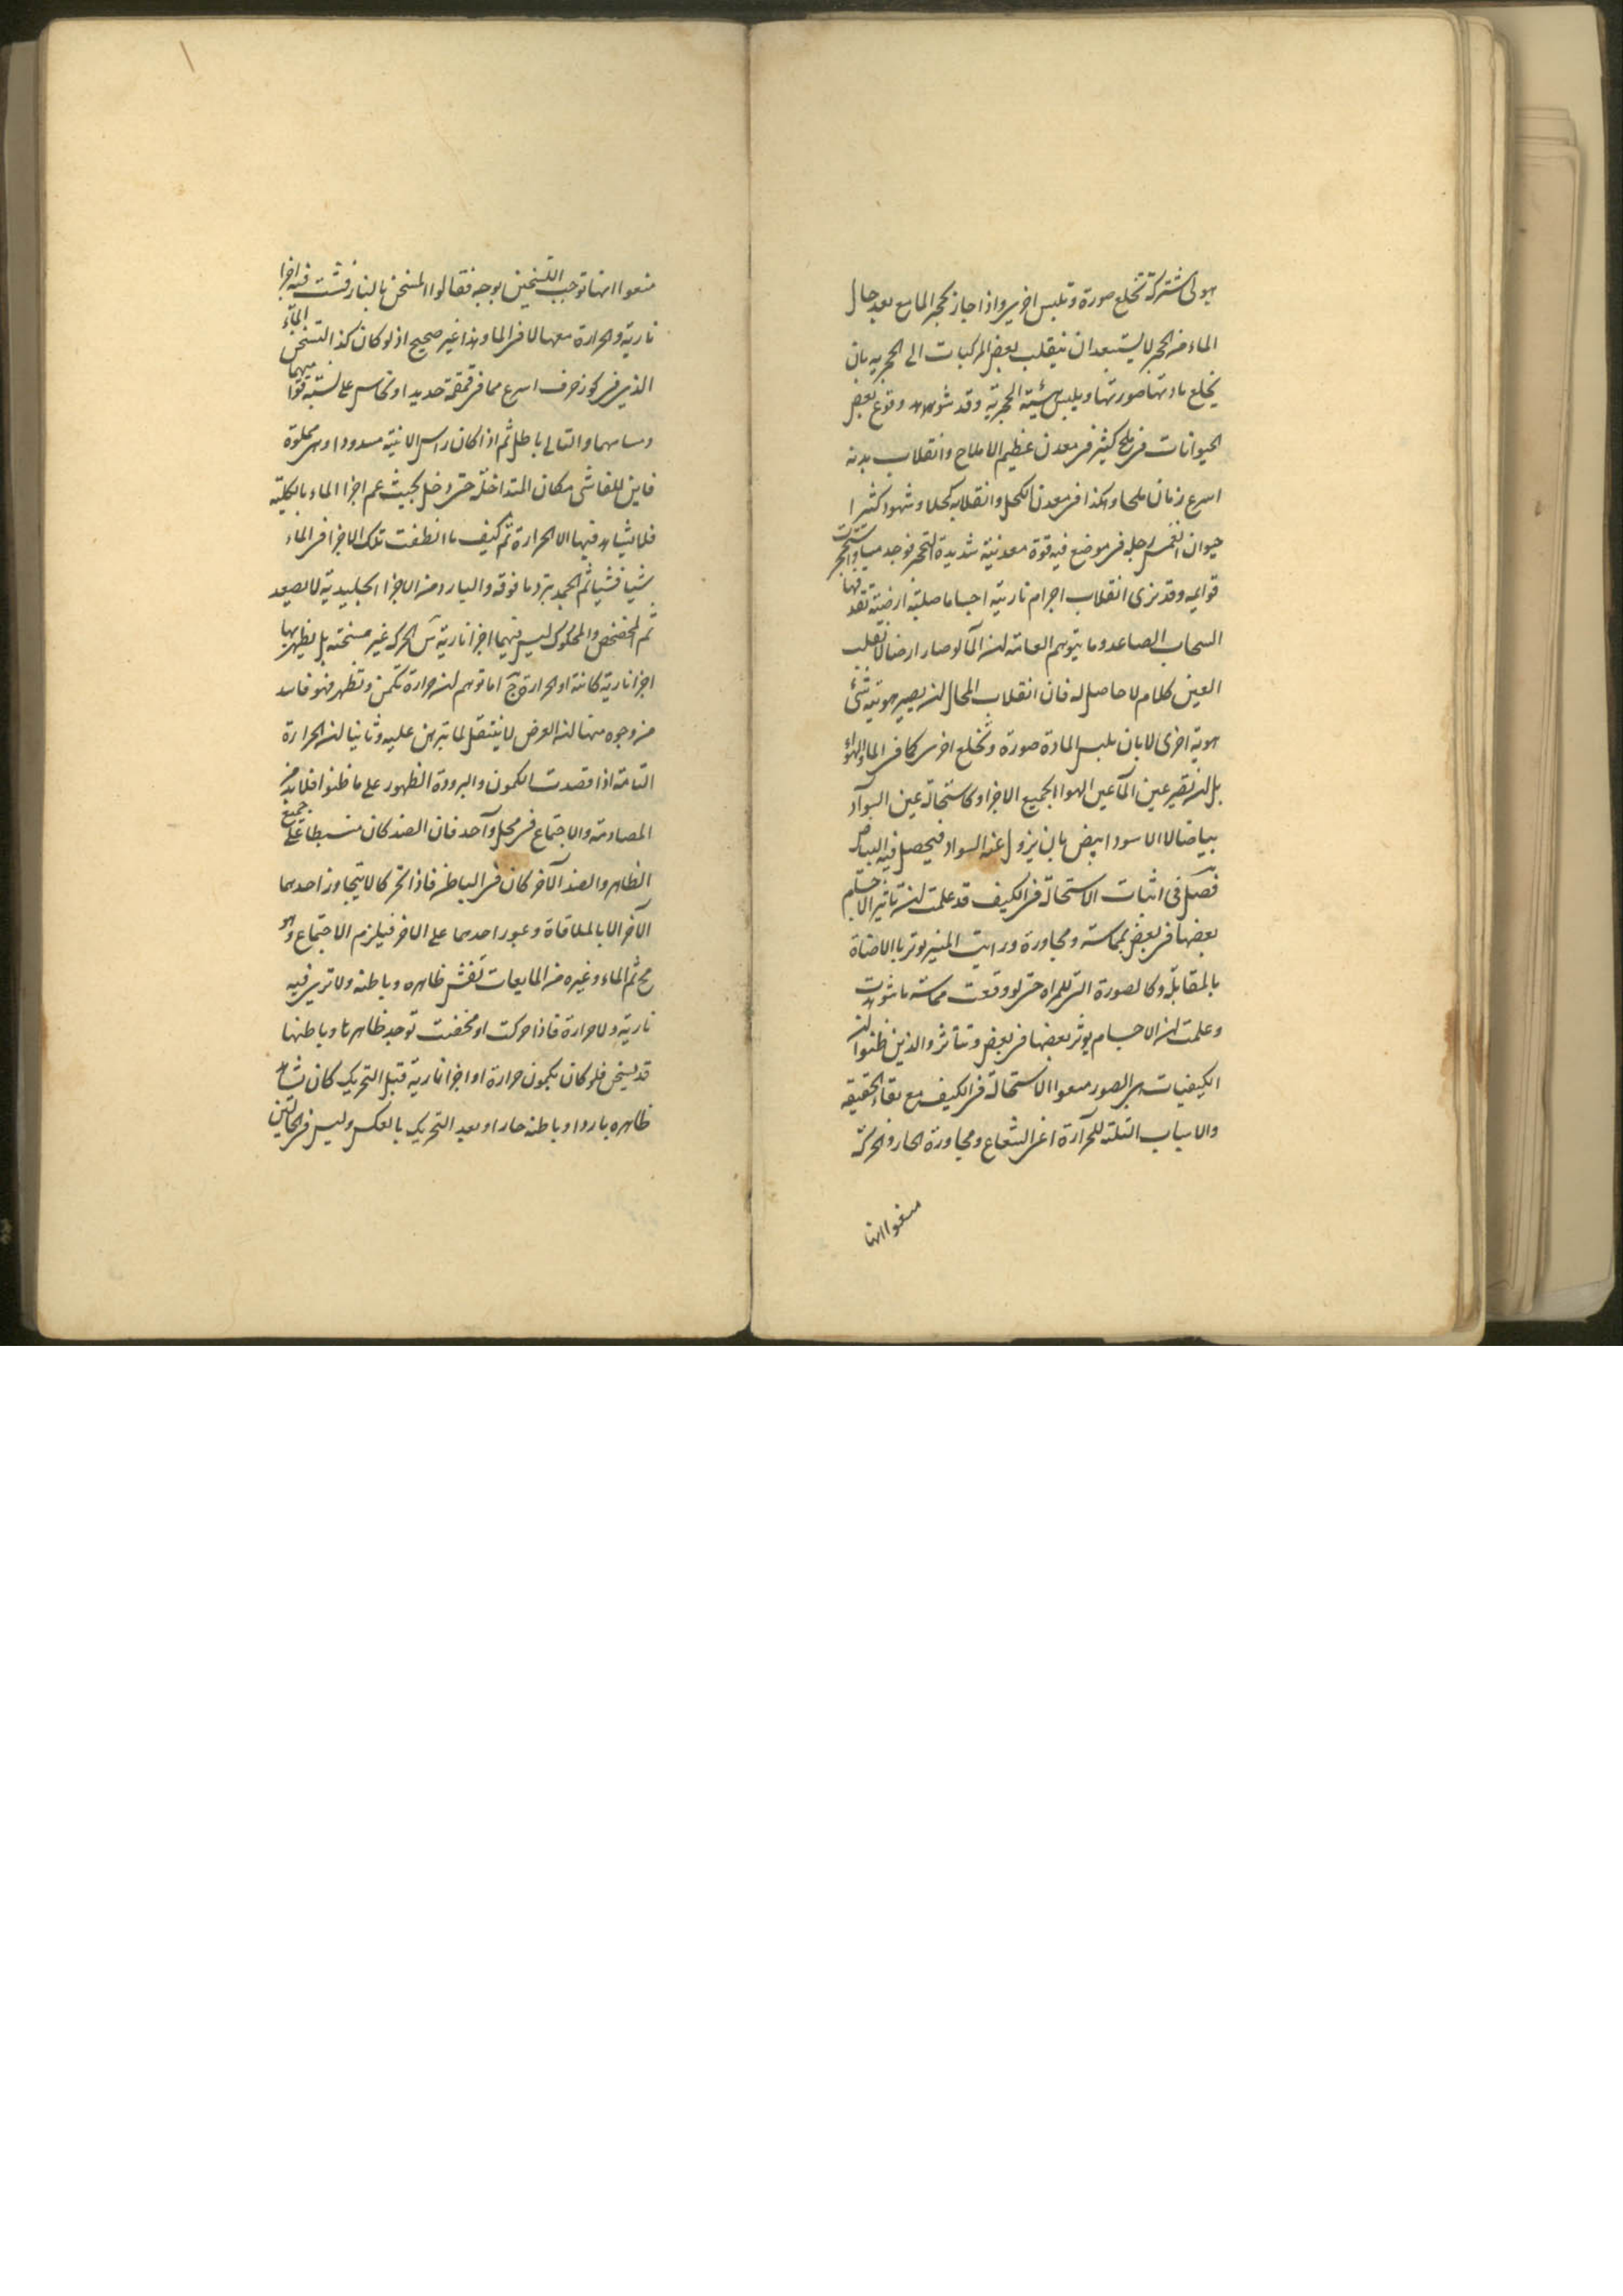 هيولى مشتركة تخلع صورة وتلبس اخرى واذا جاز تحجر المايع بعد حال
الماء من الحجر لا يستبعد ان ينقلب بعض المركبات الى الحجرية بان
يخلع مادتها صورتها ويلبس هيئته الحجرية وقد شوهد وقوع بعض
الحيوانات فى ملح كثير فى معدن عظيم الاملاح وانقلاب بدنه
اسرع زمان ملحا وهكذا فى معدن الكحل وانقلابه كحلا وشهوا كثيرا
حيوان انغمس رجله فى موضع فيه قوة معدنية شديدة التحجر فوجد ميتا وتحجرت
قوايمه وقد نرى انقلاب اجرام نارية اجساما صلبة ارضية تقذفها
السحاب الصاعد وما يتوهم العامة ان الماء لو صار ارضا لانقلب
العين كلام لا حاصل له فان انقلاب المحال ان يصير هوية شئ
هوية اخرى لا بان يلبس المادة صورة وتخلع اخرى كما فى الماء والهواء
بل ان تصير عين الماء عين الهوا بجميع الاجزا وكاستحالة عين السواد
بياضا لا الاسود ابيض بان يزول عنه السواد فيحصل فيه البياض
فصل فى اثبات الاستحالة فى الكيف قد علمت ان تاثير الاجسام
بعضها فى بعض بمماسة ومجاورة ورايت المنير يوثر بالاضاة
بالمقابلة وكالصورة التى للمراة حتى لو وقعت مماسة ما شوهدت
وعلمت ان الاجسام يوثر بعضها فى بعض وتتاثر والذين ظنوا ان
الكيفيات هى الصور منعوا الاستحالة فى الكيف مع بقاء الحقيقة
والاسباب الثلثة للحرارة اعنى الشعاع ومجاورة الحار والحركة
منعوا انها
منعوا انها توجب التسخين بوجه فقالوا المتسخن بالنار فشت فيه اجزا
نارية والحرارة معها لا فى الما وهذا غير صحيح اذ لو كان كذا التسخن الماء
الذى فى كوز خزف اسرع مما فى قمقمة حديد او نحاس على نسبة قوامهما
ومسامهما والتالى باطل ثم اذا كان راس الانية مسدودا وهى مملوة
فاين للفاشى مكان المتداخلة حتى دخل بحيث عم اجزا الماء بالكلية
فلا يشاهد فيها الا الحرارة ثم كيف ما انطفت تلك الاجزا فى الماء
شيا فشيا ثم الجمد يبرد ما فوقه والبارد من الاجزا الجليدية لا يصعد
ثم المخضخض والمحكوك ليس فيهما اجزا نارية الحركة غير مسخنة بل يظهر بها
اجزا نارية كامنة او الحرارة اما توهم ان حرارة تكمن وتظهر فهو فاسد
من وجوه منها ان العرض لا ينتقل لما تبرهن عليه وثانيا ان الحرارة
التامة اذا قصدت الكمون والبرودة الظهور على ما ظنوا فلا بد من
المصادمة والاجتماع فى محل واحد فان الضد كان منبسطا على جميع
الظاهر والضد الآخر كان فى الباطن فاذا تحركا لا يتجاوز احدهما
الآخر الا بالملاقاة وعبور احدهما على الاخر فيلزم الاجتماع وهو
مح ثم الماء وغيره من المايعات نفتش ظاهره وباطنه ولا نرى فيه
نارية ولا حرارة فاذا حركت او مخضت توجد ظاهرها وباطنها
قد يسخن فلو كان بكمون حرارة او اجزا نارية قبل التحريك كان نشاهد
ظاهره باردا وباطنه حارا وبعد التحريك بالعكس وليس فى الحالتين